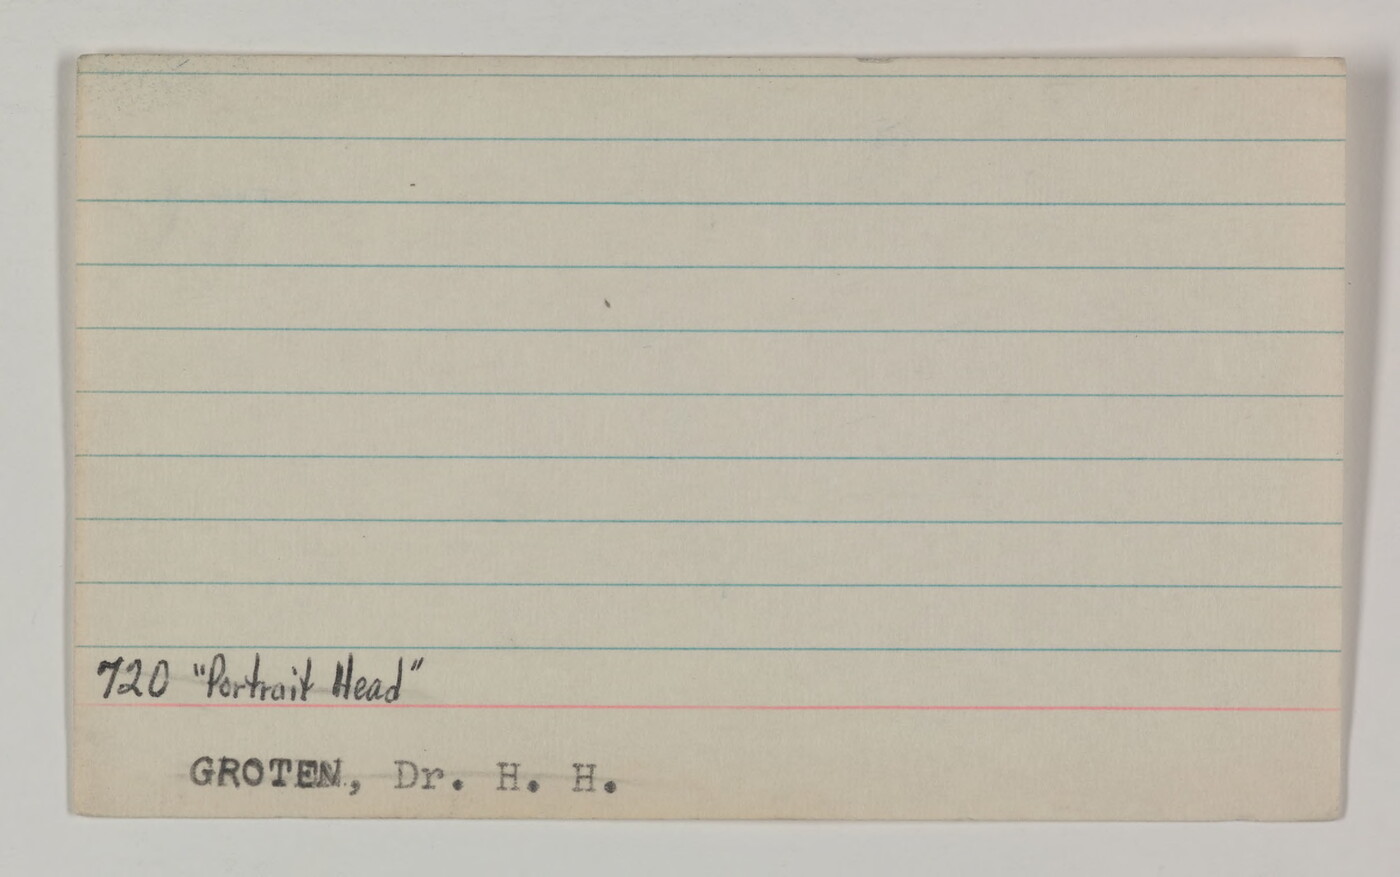 720 "Portrait Head"
GROTEN, Dr. H. H.